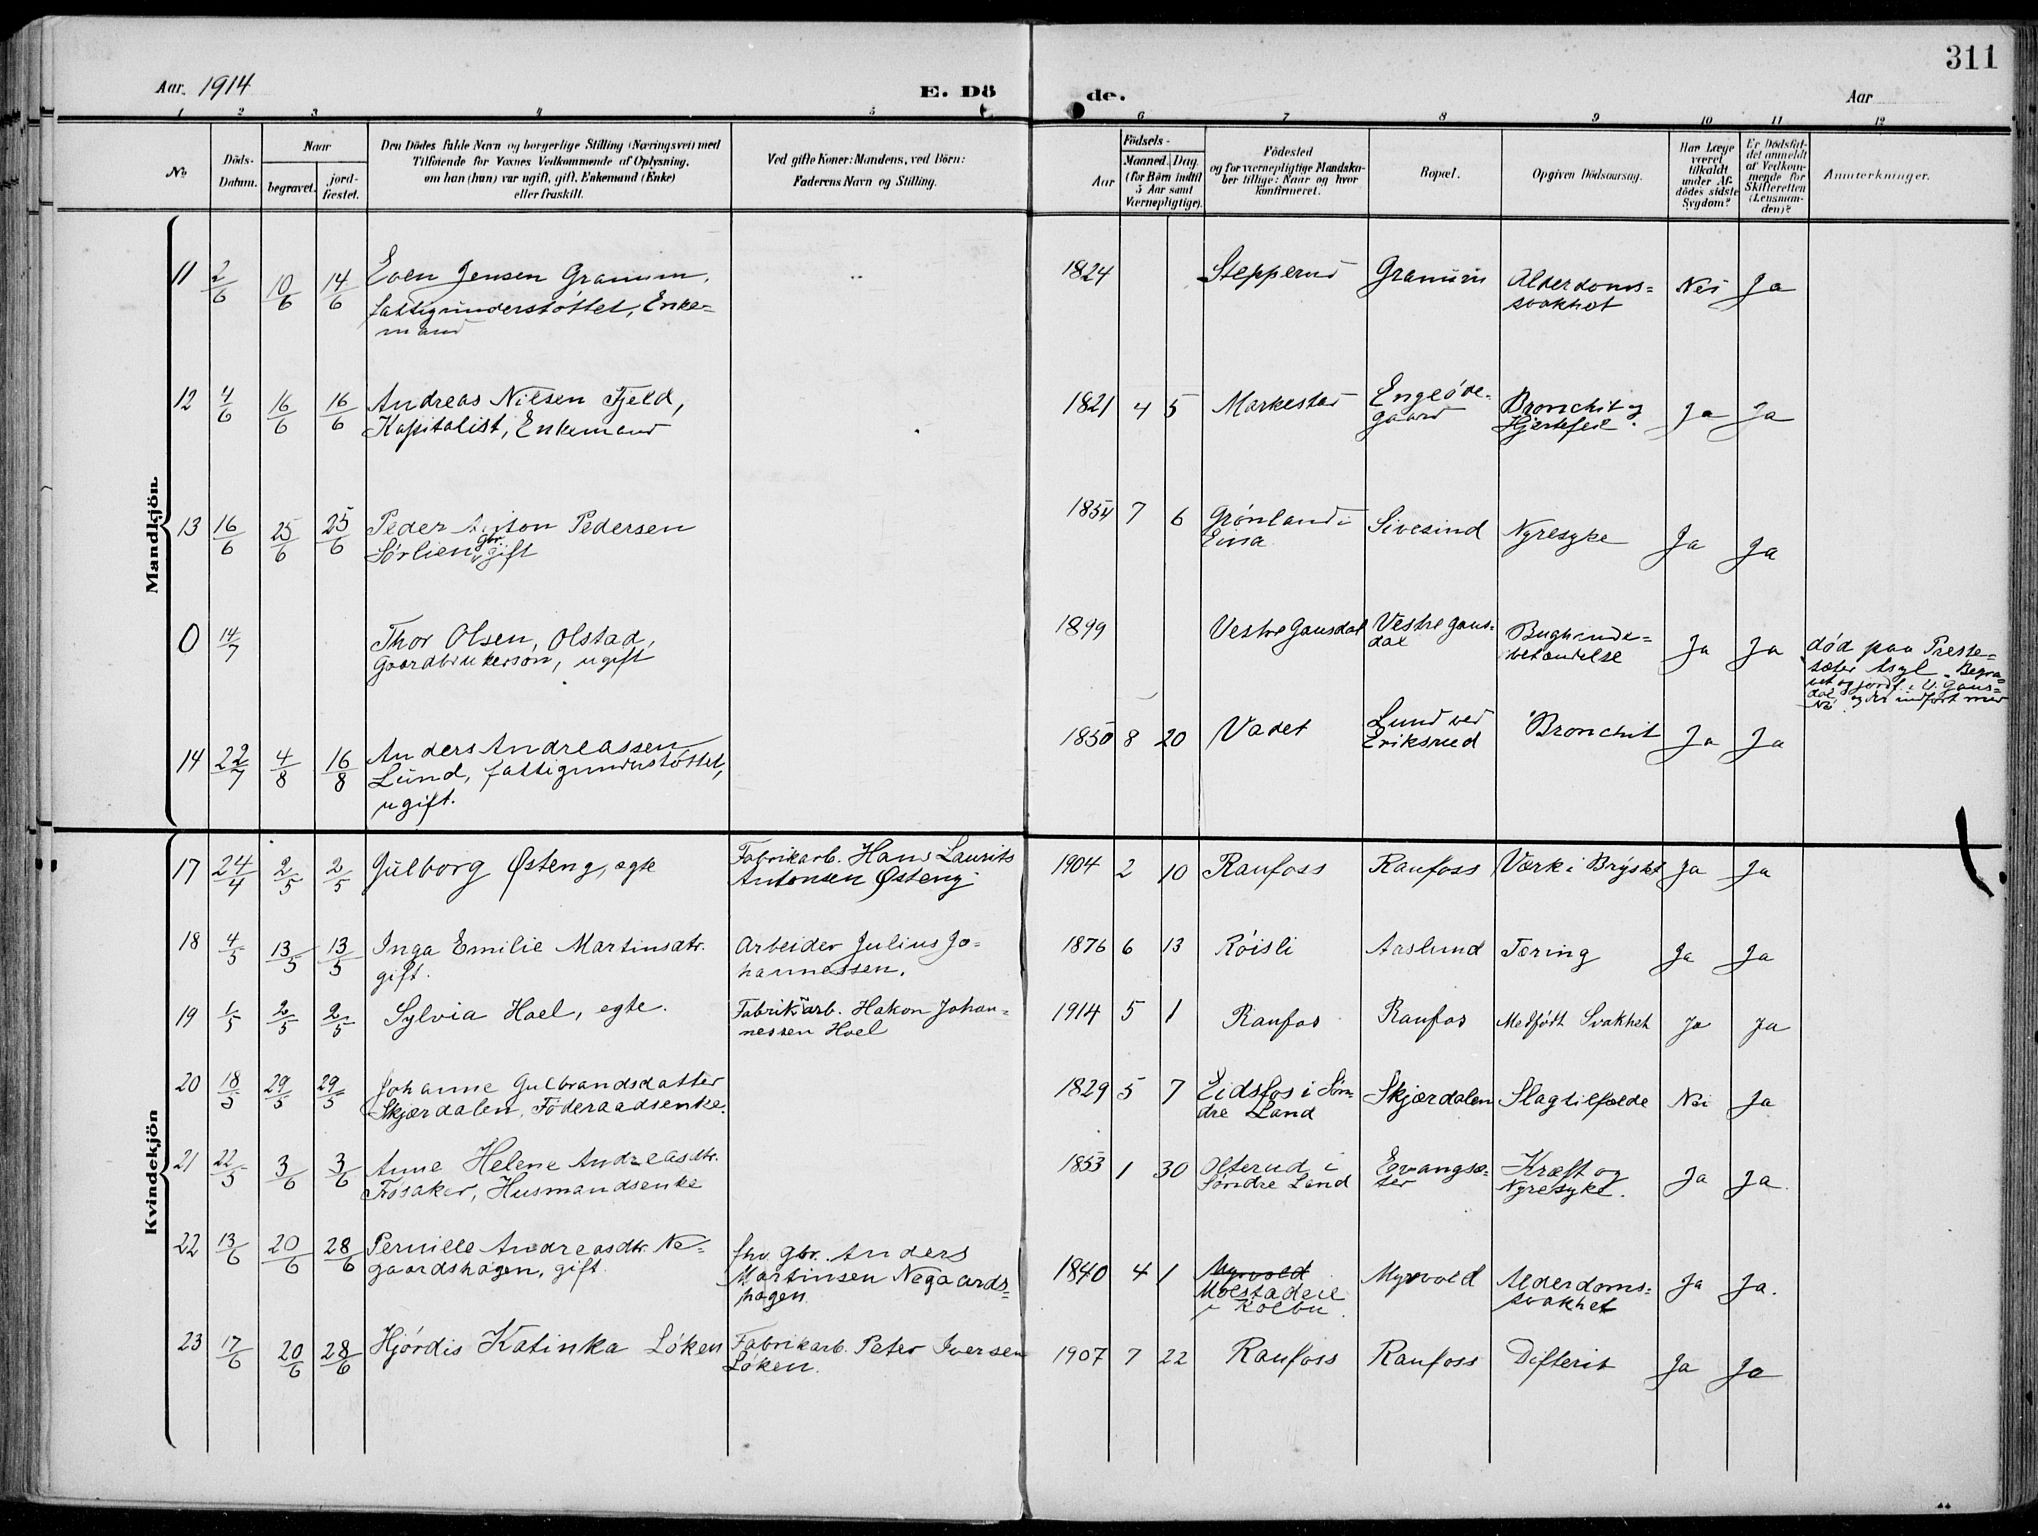 311
Aar. 1914
E. Dö
de.
Aar
1 2 3 4 5 6 7 8 9 10 11 12
No
Döds-Datum.
Naar
begravet.
jord-fæstet.
Den Dödes fulde Navn og borgerlige Stilling (Næringsvei) med
Tilföiende for Voxnes Vedkommende af Oplysning,
om han (hun) var ugift, gift, Enkemand (Enke)
eller fraskilt.
Ved gifte Koner: Mandens, ved Börn:
Faderens Navn og Stilling.
Födsels-
Aar
Maaned. Dag.
(for Börn indtil
5 Aar samt
Værnepligtige).
Födested
og for værnepligtige Mandska-
ber tillige: Naar og hvor
konfirmeret.
Bopæl.
Opgiven Dödsaarsag.
Har Læge
været
tilkaldt
under Af-
dödes sidste
Sygdom?
Er Dödsfal-
det anmeldt
af Vedkom-
mende for
Skifteretten
(Lensman-
den)?
Anmærkninger.
Mandkjön.
11 2/6 10/6 14/6 Even Jensen Granum,
fattigunderstøttet, Enke=
mand
1824 Stepperud Granum Alderdoms=
svakhet Nei Ja
12 4/6 16/6 16/6 Andreas Nilsen Fjeld,
Kapitalist, Enkemand
1821 4 5 Markestad Engeøde-
gaard Bronchit og
Hjertefeil. Ja Ja
13 16/6 25/6 25/6 Peder Anton Pedersen
Sørlien gbr. ugift
1854 7 6 Grønland i
Eina Sivesind Nyresyke Ja Ja
0 14/7 Thor Olsen, Olstad,
Gaardbrukersøn, ugift
1899 Vestre Gausdal Vestre Gaus-
dal Bughinde-
betændelse Ja Ja død paa Preste-
sæter Asyl. Begra-
vet og jordf. i V. Gaus=
dal og der indført med
No
14 22/7 4/8 16/8 Anders Andreassen
Lund, fattigunderstøttet,
ugift.
1850 8 20 Vadet Lund ved
Eriksrud Bronchit Ja Ja
Kvindekjön
17 24/4 2/5 2/5 Gulborg Østeng, egte Fabrikarb. Hans Laurits
Antonsen Østeng
1904 2 10 Raufoss Raufoss Værk i Brystet Ja Ja
18 4/5 13/5 13/5 Inga Emilie Martinsdtr.
gift. Arbeider Julius Jo-
hannessen.
1876 6 13 Røisli Aaslund Tæring Ja Ja
19 1/5 2/5 2/5 Sylvia Hoel, egte. Fabriksarb. Hakon Johan-
nessen Hoel
1914 5 1 Raufos Raufos Medfødt Svakhet Ja Ja
20 18/5 29/5 29/5 Johanne Gulbrandsdatter
Skjærdalen, Føderaadsenke.
1829 5 7 Eidsfos i Søn-
dre Land Skjærdalen Slagtilfælde Nei Ja
21 22/5 3/6 3/6 Anne Helene Andreasdtr.
Fosaker, Husmandsenke
1853 1 30 Olterud i
Søndre Land Evangsæ-
ter Kræft og
Nyresyke. Ja Ja
22 13/6 20/6 28/6 Pernille Andreasdtr. Ne-
gaardshagen, gift. fhv gbr. Anders
Martinsen Negaards=
hagen.
1840 4 1 Myrvold
Molstadeie
i Kolbu. Myrvold Alderdoms=
svakhet Ja Ja.
23 17/6 20/6 28/6 Hjørdis Katinka Løken Fabrikarb. Peter Iversen
Løken.
1907 7 22 Raufoss Raufoss Difterit Ja Ja